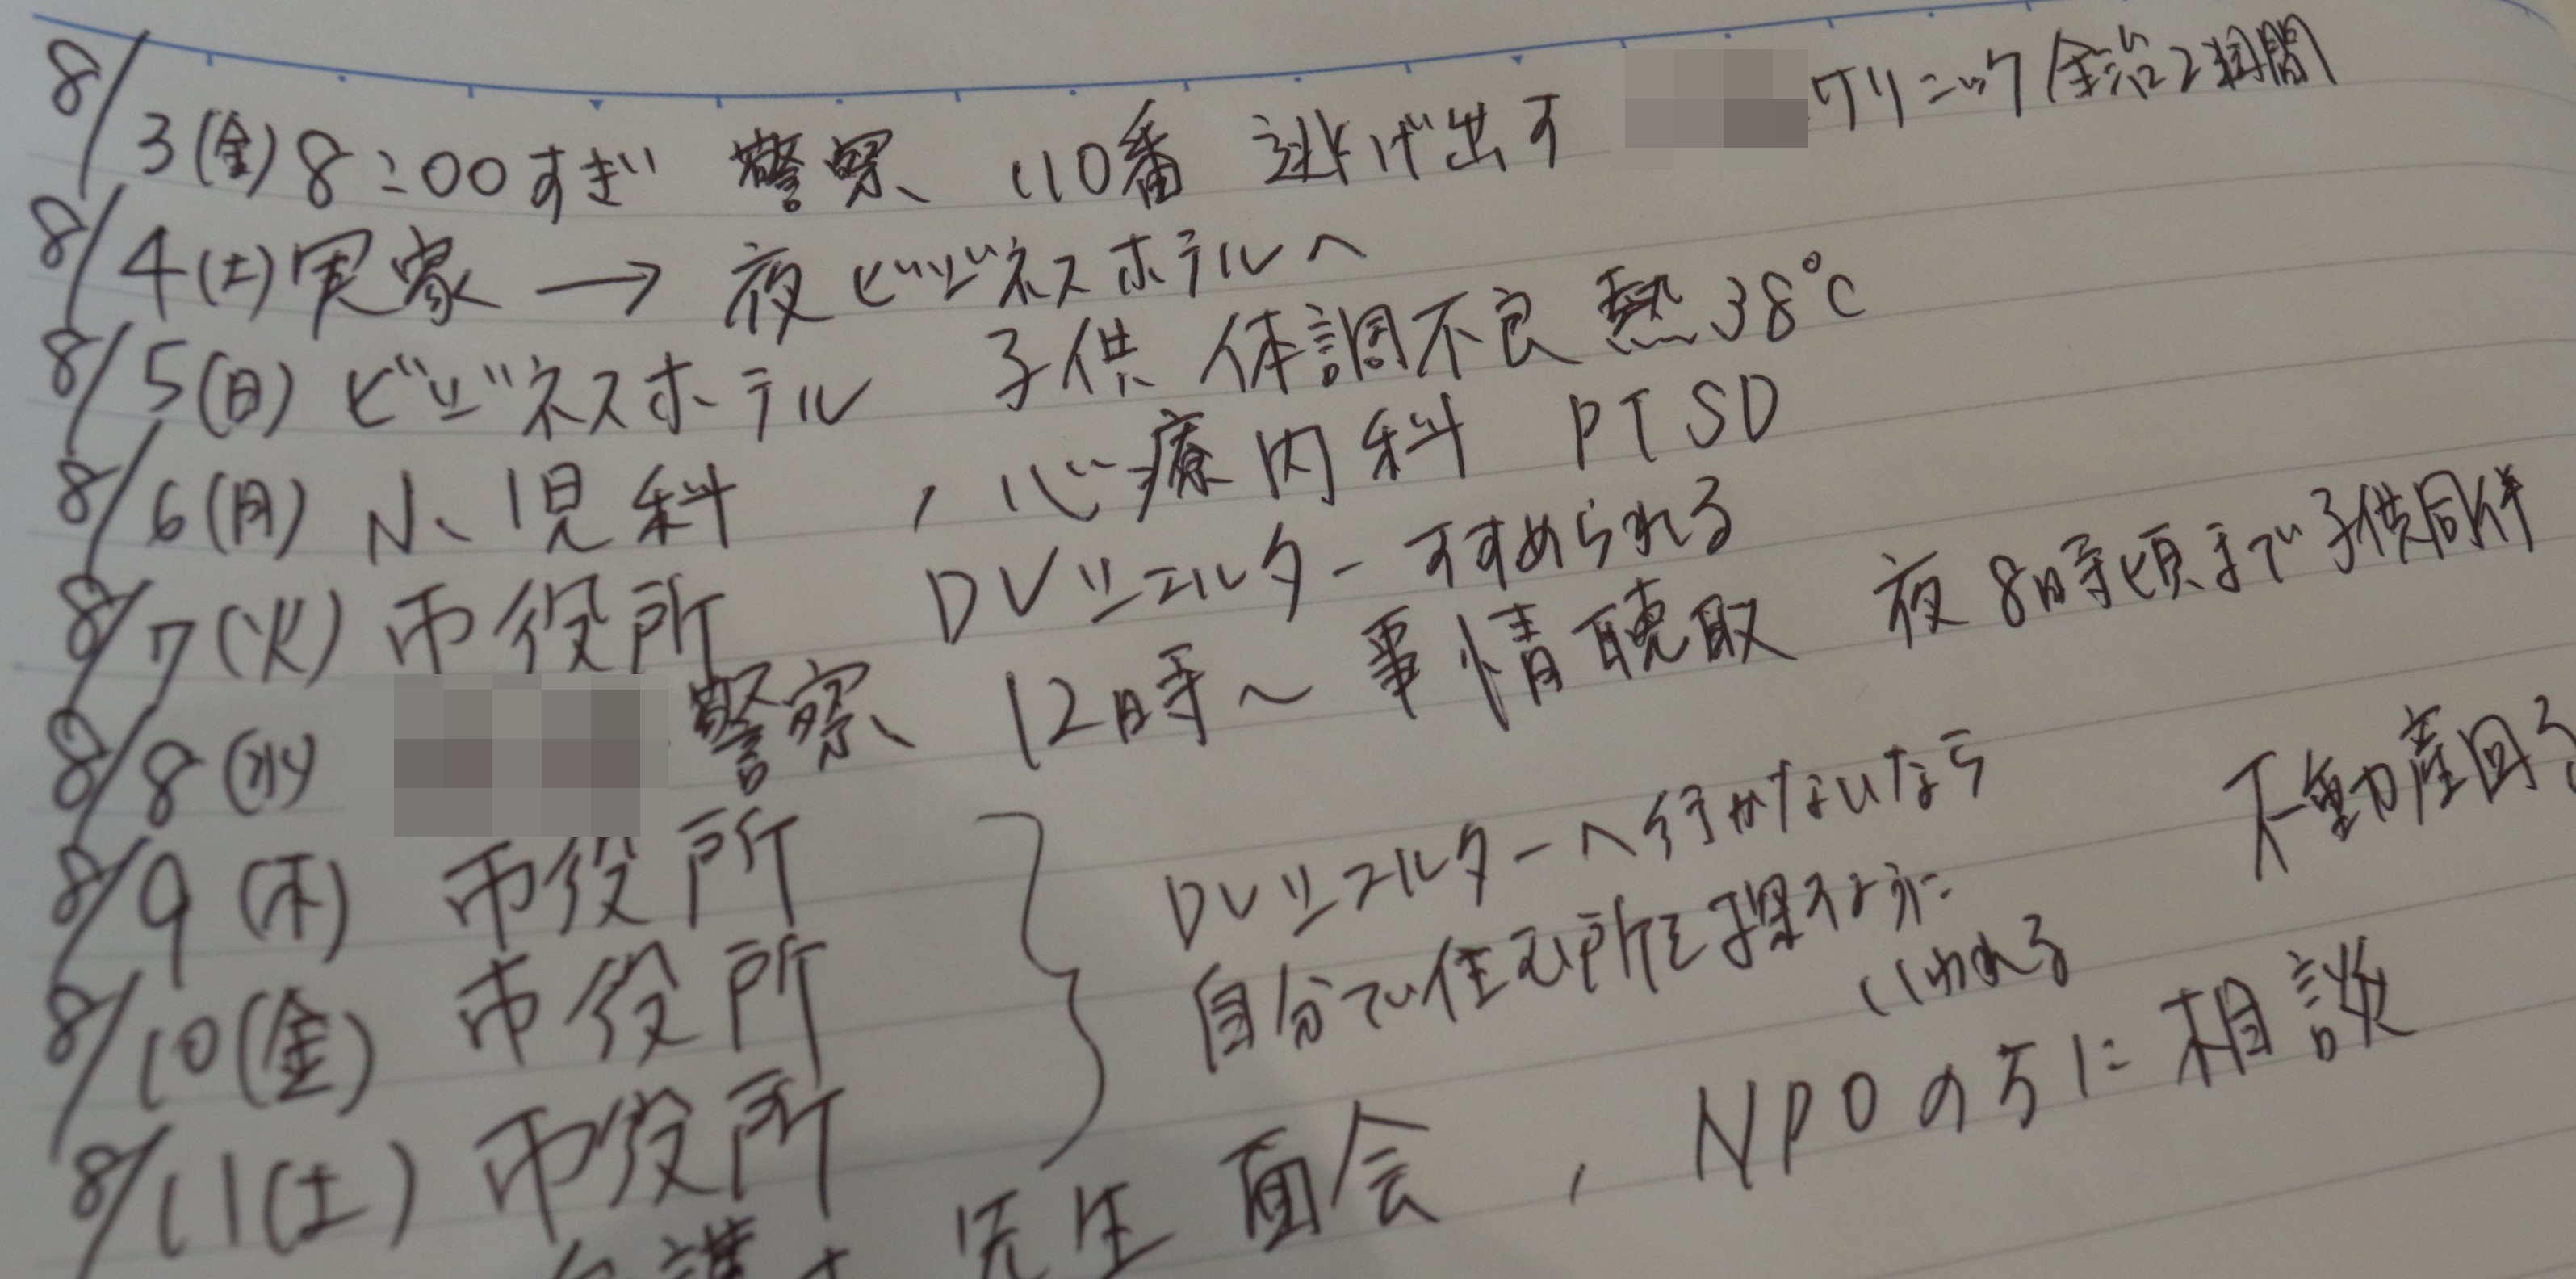 8/3(金) 8:00すぎ 警察 110番 逃げ出す クリニック 全治2週間
8/4(土) 実家 → 夜 ビジネスホテルへ
8/5(日) ビジネスホテル 子供 体調不良 熱38℃
8/6(月) 小児科 , 心療内科 PTSD
8/7(火) 市役所 DVシェルター すすめられる
8/8(水) 警察 12時〜事情聴取 夜8時頃まで子供同伴
8/9(木) 市役所 DVシェルターへ行かないなら 不動産回る
8/10(金) 市役所 自分で住む所を探すように
いわれる
8/11(土) 市役所
弁護士 先生 面会 , NPOの方に相談